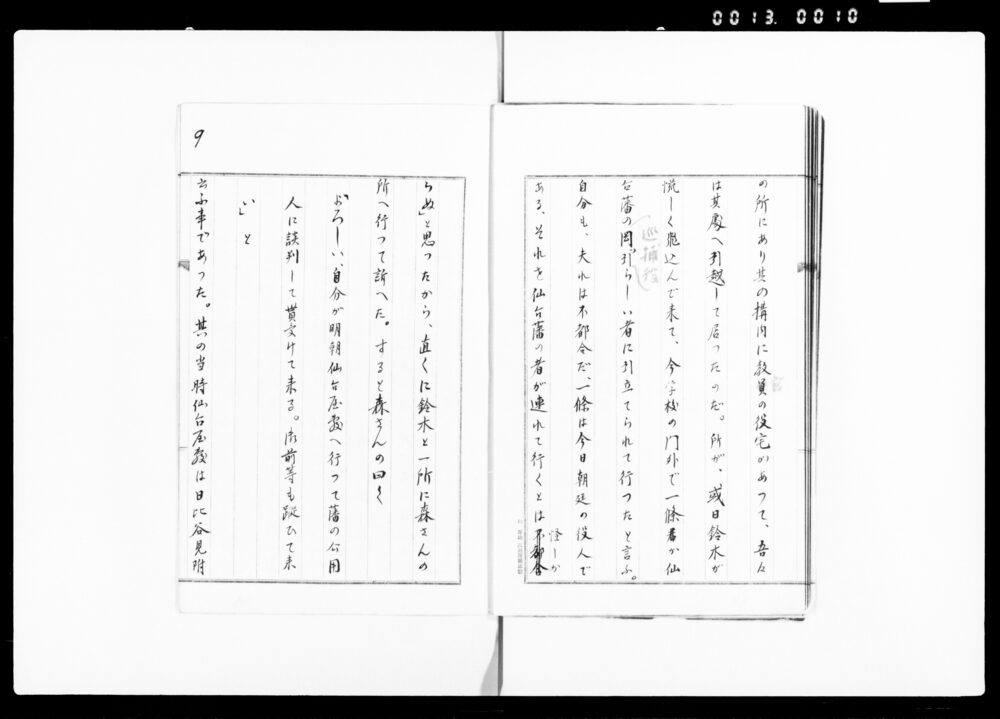 0013 0010
の所にあり其の構内に教員の役宅があつて、吾々
は其處へ引越して居つたのだ。所が、或日鈴木が
慌しく飛込んで来て、今学校の門外で一條君が仙
台藩の岡引らしい者に引立てられて行つたと言ふ。
巡捕役
自分も、夫れは不都合だ、一條は今日朝廷の役人で
ある、それを仙台藩の者が連れて行くとは不都合
怪しか
9
らぬ」と思つたから、直くに鈴木と一所に森さんの
所へ行つて訴へた。すると森さんの曰く
「よろしい、自分が明朝仙台屋敷へ行つて藩の公用
人に談判して貰受けて来る。御前等も蹤ひて来
い」と
云ふ事であつた。其の当時仙台屋敷は日比谷見附